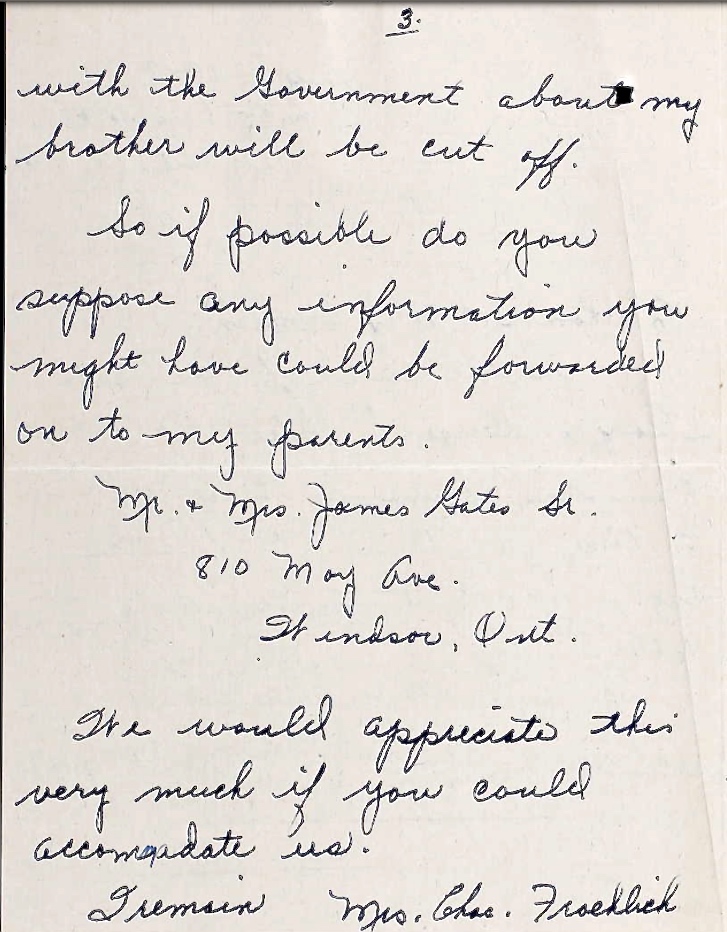 3.
with the Government about my
brother will be cut off.
So if possible do you
suppose any information you
might have could be forwarded
on to my parents.
Mr. & Mrs. James Gates Sr.
810 Moy Ave.
Windsor, Ont.
We would appreciate this
very much if you could
accomodate us.
I remain Mrs. Chas. Froehlich